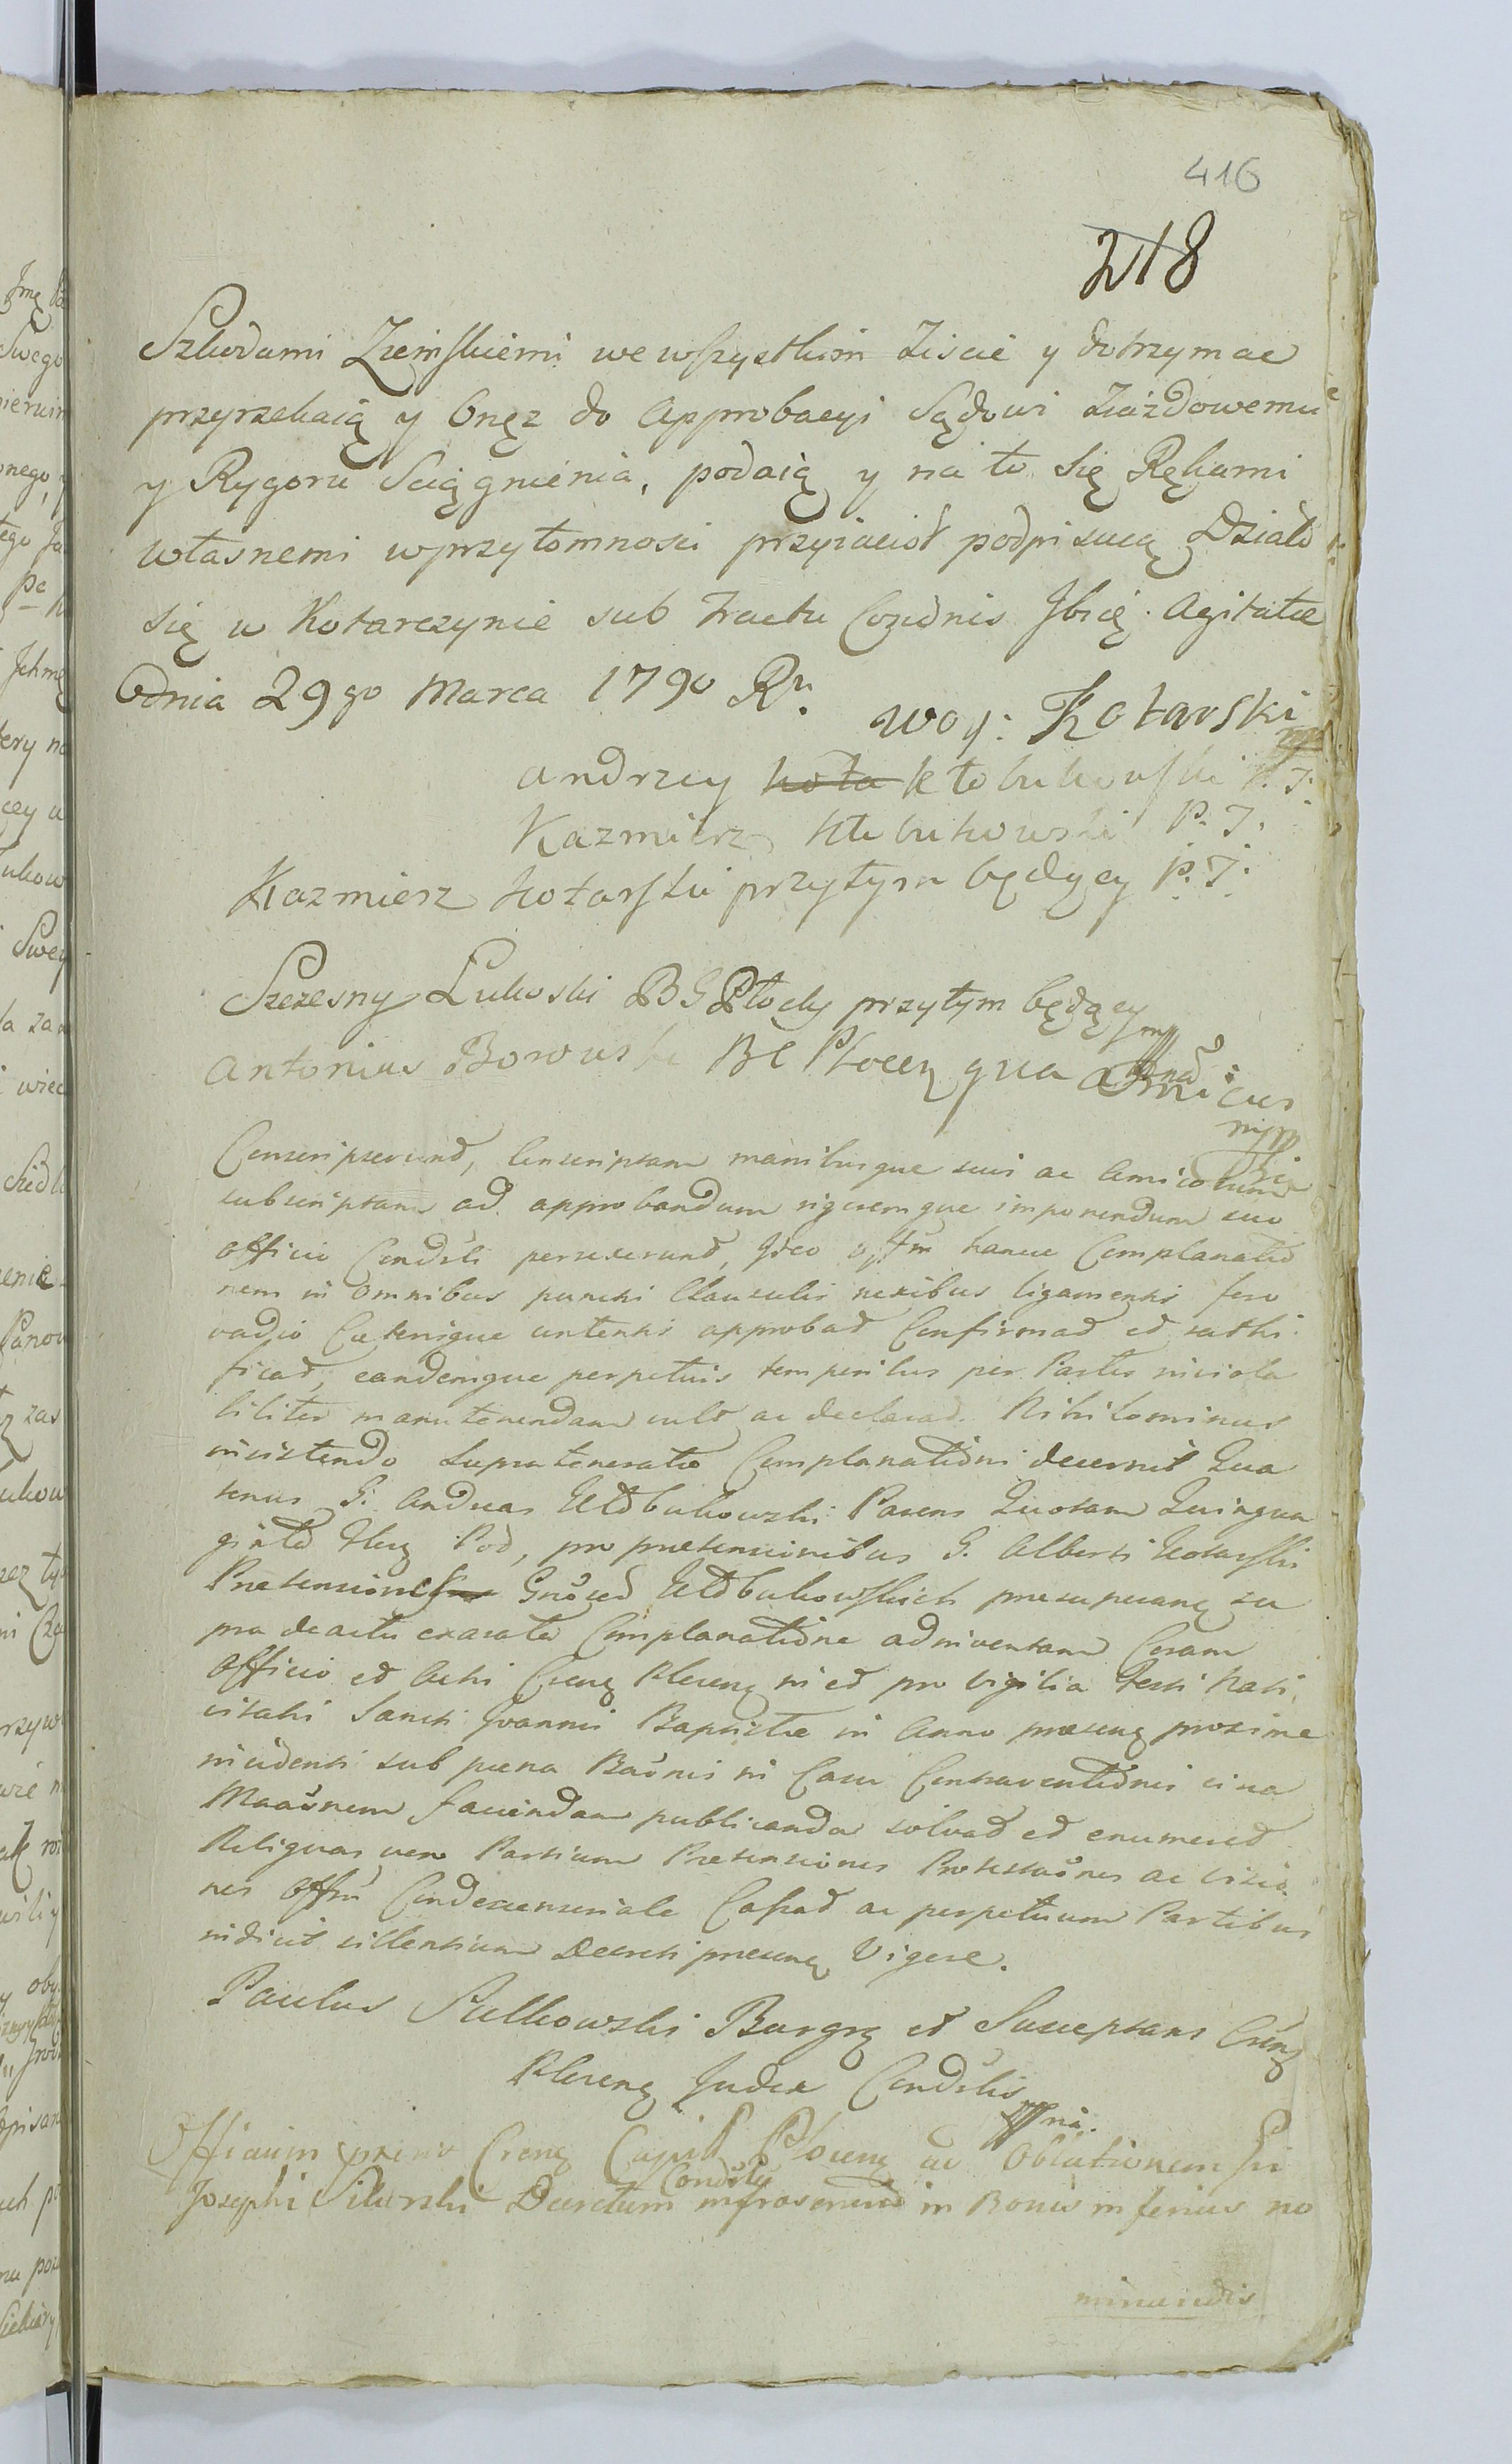 416
218
Szkodami Ziemskiemi we wszystkim Ziscic y dotrzymac
przyrzekaią y Onęz do Approbacyi Sądowi Ziazdowemu
y Rygoru Sciągnienia, podaią y na to się Rękami
własnemi wprzytomnosci przyiacioł podpisuią Działo
się w Kotarczynie sub tractu Condnis Jbię. Agitatæ
Ddnia 29go Marca 1790 Ru.
woy: Kotarski
mp
andrzey kota kłobukowski P. J.
Kazmierz kłobukowski P. J.
Kazmierz kotarski przytym będący P. J.
Szczesny Lukoski BG Płocky przytym będący
mpp
Antonius Borowski BC Płocen qua Amicus
mpp
Conscripserund, Conscriptam manibusque sui ac Amicorum
subscriptam ad approbandum rigoremque imponendum suo
Officio Condsli porrexerund, Ideo offm hance Complanatio
nem in omnibus punctis Clausulis nexibus ligamentis foro
vadio Cæterisque contentis approbad Confirmad ed rathi
ficad, eandemque perpetuis temporibus per Partes inviola
biliter manutenendam vult ac declarad. Nihilominus
insistendo supratenoratæ Complanationi decernit Qua
tenus G. Andreas Kłobukowski Parens Quotam Quinqua
ginta flnę Pol, pro prætensionibus G. Alberti Kotarski
Prætensiones Gnosed Kłobukowskich
pra de actu exarata Complanatione adinventam Coram
Officio ed Actis Crenę Plocenę in ed pro vigilia Festi Nati
vitatis Sancti Joannis Baptistæ in Anno præsenę proxime
incidenti sub pœna Banis in Casu Contraventionis
faciendam publicanda solvad ed enumered
Reliquas vero Partium Prætensiones Protestanes ac
nes Offm Condescensoriale Cassad ac perpetuum Partibus
indicit sillentium Decreti præsenę Vigore.
Paulus Sulkowski Burgrę et Susceptans Crenę
Plocenę Judex Condslis
mpp
Officium Crenę Capitl Plocenę ad Oblationem
Josephi Sikorski Decretum Condsle in Bonis inferius no
minandis